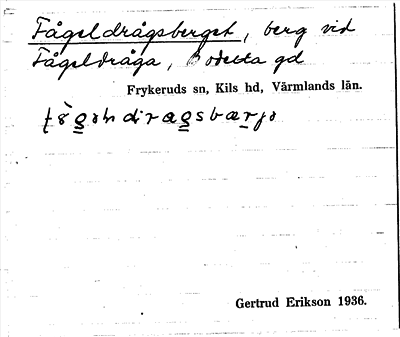 Fågeldrågsberget, berg vid
Fågeldråga, Bodetta gd
Frykeruds sn, Kils hd, Värmlands län.
Gertrud Erikson 1936.